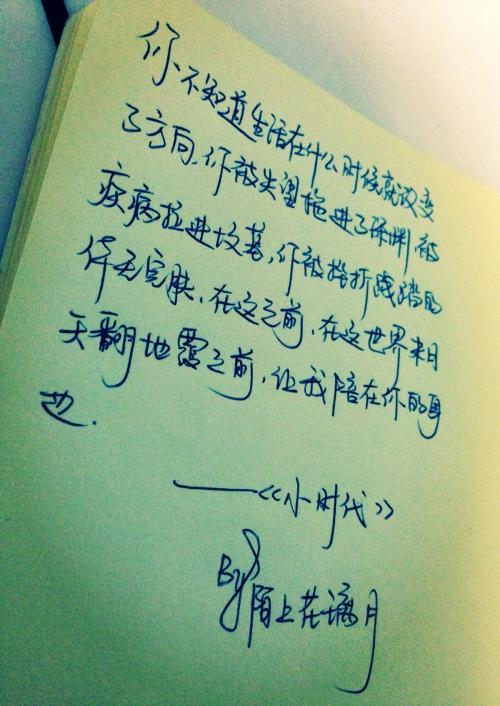 你不知道生活在什么时候就改变
了方向.你被失望拖进了深渊,被
疾病拉进坟墓,你被挫折践踏的
体无完肤.在这之前,在这世界末日
天翻地覆之前,让我陪在你的身
边.
——《小时代》
By 陌上花漓月